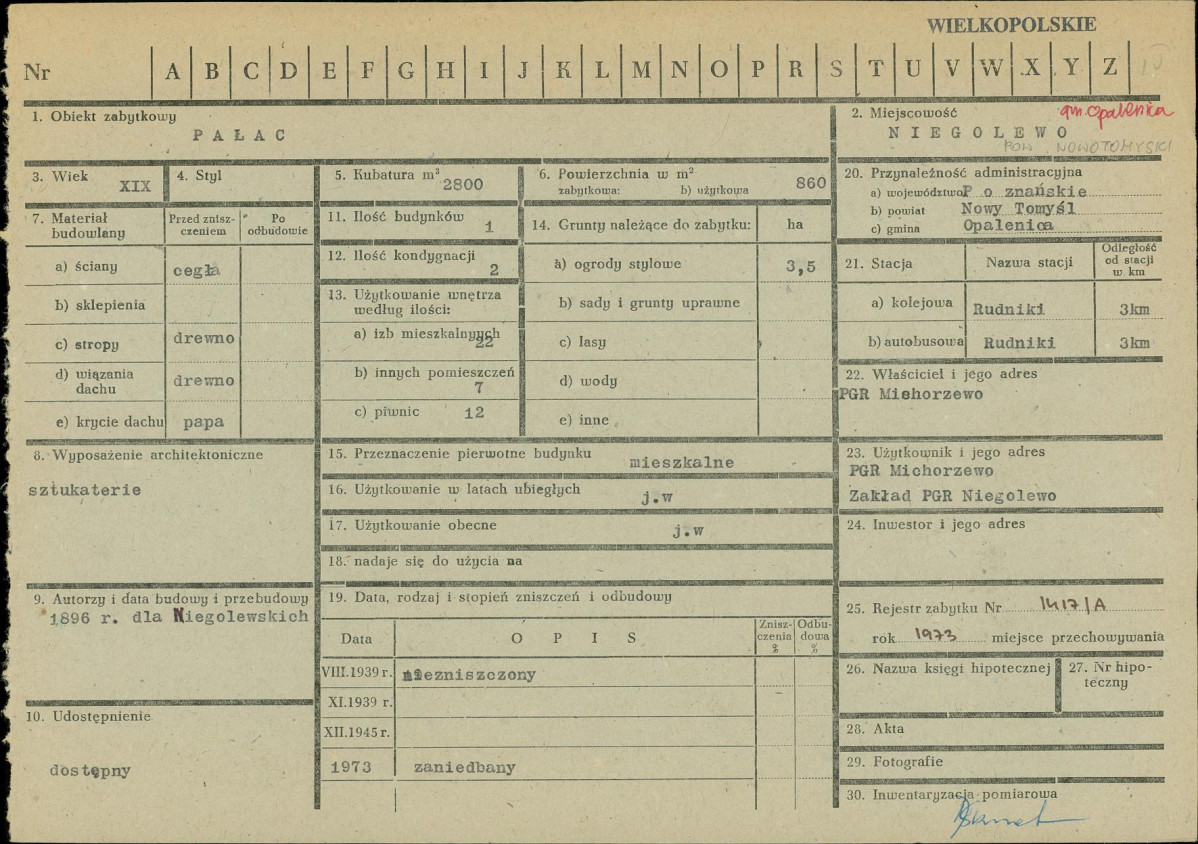 WIELKOPOLSKIE
Nr A B C D E F G H I J K L M N O P R S T U V W X Y Z
1. Obiekt zabytkowy
PAŁAC
2. Miejscowość gm. Opalenica
NIEGOLEWO
POW. NOWOTOMYSKI
3. Wiek XIX
4. Styl
5. Kubatura m³ 2800
6. Powierzchnia w m²
zabytkowa: b) użytkowa 860
7. Materiał budowlany
Przed zniszczeniem
Po odbudowie
a) ściany cegła
b) sklepienia
c) stropy drewno
d) wiązania dachu drewno
e) krycie dachu papa
8. Wyposażenie architektoniczne
sztukaterie
9. Autorzy i data budowy i przebudowy
1896 r. dla Niegolewskich
10. Udostępnienie
dostępny
11. Ilość budynków 1
12. Ilość kondygnacji 2
13. Użytkowanie wnętrza
według ilości:
a) izb mieszkalnych 22
b) innych pomieszczeń
7
c) piwnic 12
14. Grunty należące do zabytku: ha
a) ogrody stylowe 3,5
b) sady i grunty uprawne
c) lasy
d) wody
e) inne
15. Przeznaczenie pierwotne budynku mieszkalne
16. Użytkowanie w latach ubiegłych j.w
17. Użytkowanie obecne j.w
18. nadaje się do użycia na
19. Data, rodzaj i stopień zniszczeń i odbudowy
Data OPIS Zniszczenia % Odbudowa %
VIII.1939 r. niezniszczony
XI.1939 r.
XII.1945 r.
1973 zaniedbany
20. Przynależność administracyjna
a) województwo P o znańskie
b) powiat Nowy Tomyśl
c) gmina Opalenica
21. Stacja Nazwa stacji Odległość od stacji w km
a) kolejowa Rudniki 3km
b) autobusowa Rudniki 3km
22. Właściciel i jego adres
PGR Michorzewo
23. Użytkownik i jego adres
PGR Michorzewo
Zakład PGR Niegolewo
24. Inwestor i jego adres
25. Rejestr zabytku Nr 1417/A
rok 1973 miejsce przechowywania
26. Nazwa księgi hipotecznej
27. Nr hipoteczny
28. Akta
29. Fotografie
30. Inwentaryzacja pomiarowa